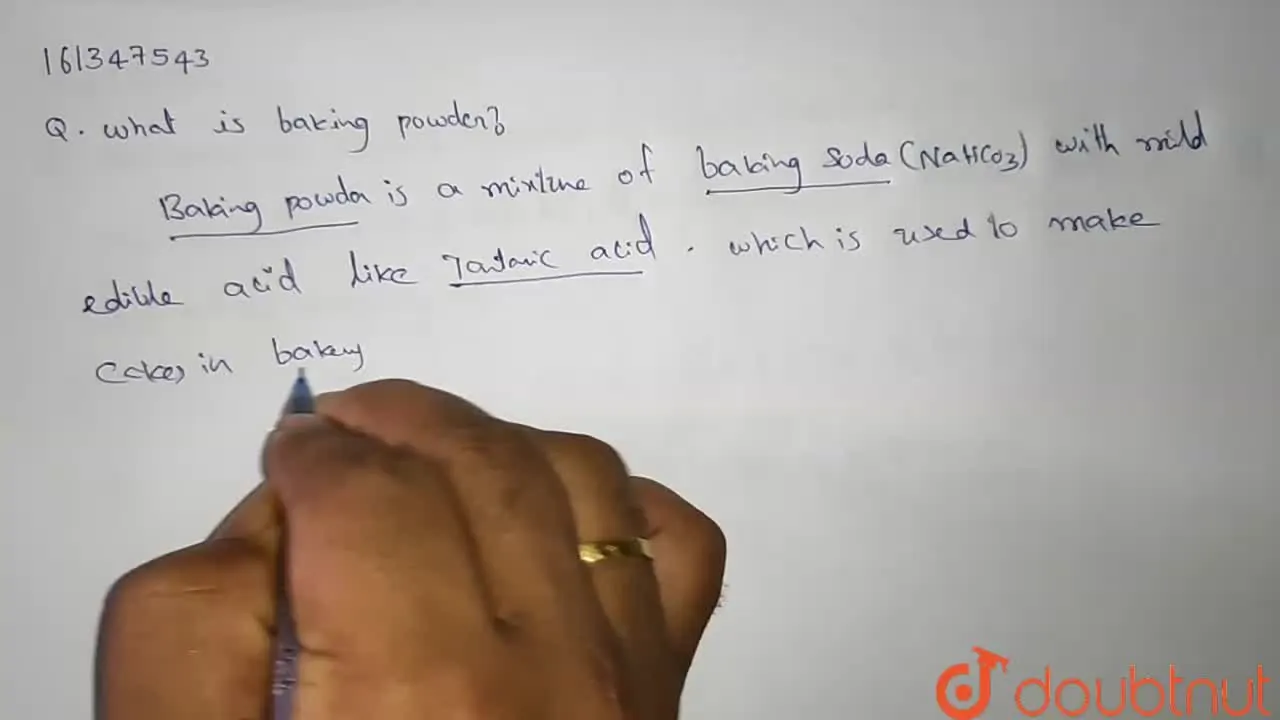 161347543
Q. what is baking powder?
Baking powder is a mixture of baking soda (NaHCO3) with mild
edible acid like Tartaric acid. which is used to make
Cakes in bakery
doubtnut